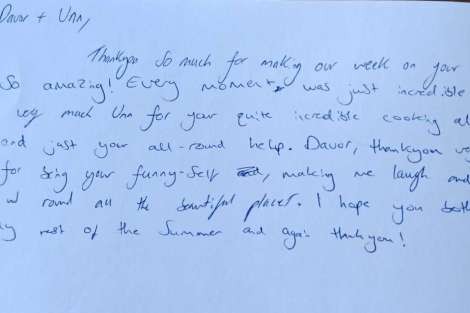 Davor + Unn,
Thankyou so much for making our week on your
so amazing! Every moment was just incredible
very much Unn for your quite incredible cooking al
and just your all-round help. Davor, thankyou ve
for being your funny-self, making me laugh and
round all the beautiful places. I hope you both
rest of the Summer and again thankyou!